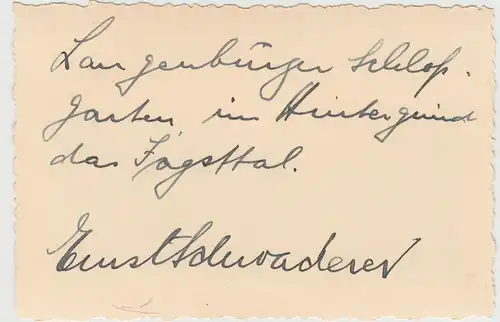 Langenburger Schloß-
garten, im Hintergrund
das Jagsttal.
Ernst Schwaderer